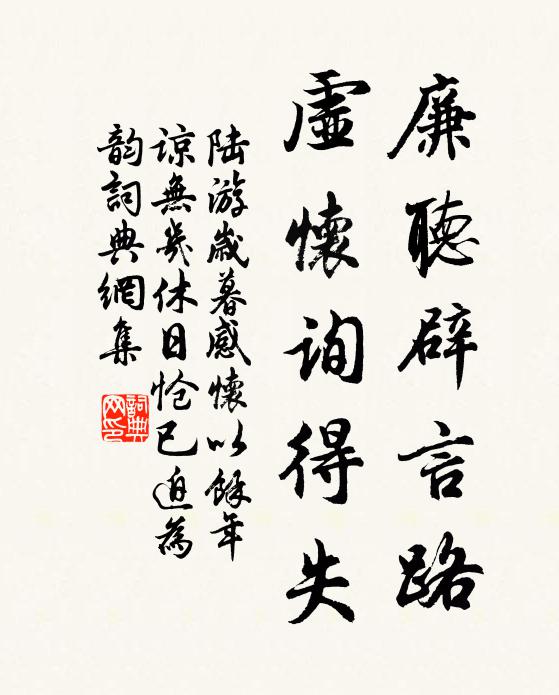 廉聽辟言路
虛懷詢得失
陸游歲暮感懷以餘年
諒無幾休日愴已迫為
韵詞典網集
詞典
网印